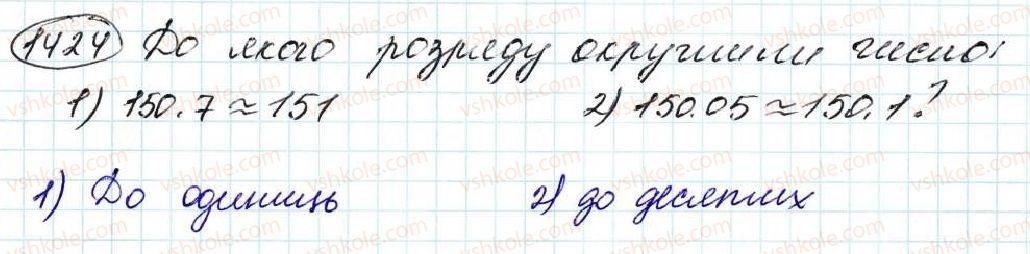 1424 До якого розряду округлили число:
1) 150.7 ≈ 151 2) 150.05 ≈ 150.1?
1) До одиниць 2) до десятих